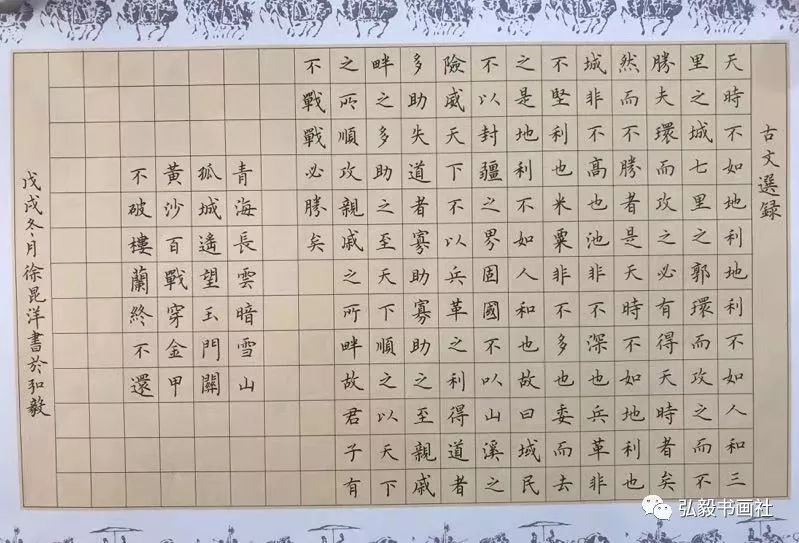 古文選録
天時不如地利地利不如人和三
里之城七里之郭環而攻之而不
勝夫環而攻之必有得天時者矣
然而不勝者是天時不如地利也
城非不高也池非不深也兵革非
不堅利也米粟非不多也委而去
之是地利不如人和也故曰域民
不以封疆之界固國不以山溪之
險威天下不以兵革之利得道者
多助失道者寡助寡助之至親戚
畔之多助之至天下順之以天下
之所順攻親戚之所畔故君子有
不戰戰必勝矣
青海長雲暗雪山
孤城遙望玉門關
黃沙百戰穿金甲
不破樓蘭終不還
戊戌冬月徐昆洋書於弘毅
弘毅书画社